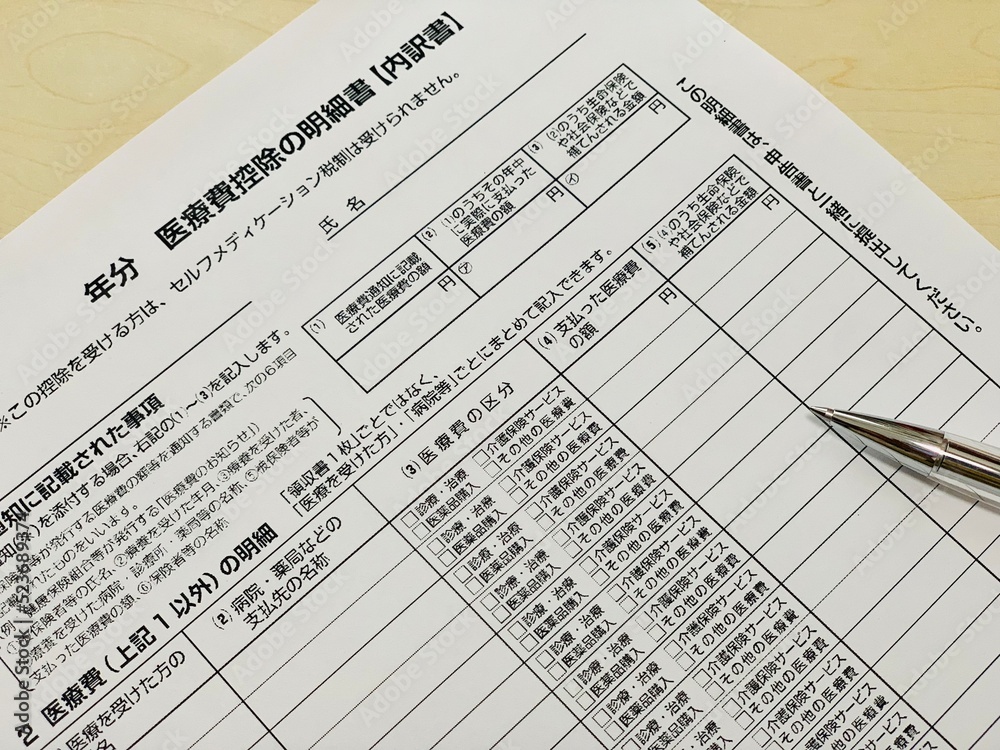 年分 医療費控除の明細書【内訳書】
※この控除を受ける方は、セルフメディケーション税制は受けられません。
氏 名
この明細書は、申告書と一緒に提出してください。
通知に記載された事項
を添付する場合、右記の(1)~(3)を記入します。
が発行する医療費の額等を通知する書類で、次の6項目
れたものをいいます。
健康保険組合等が発行する「医療費のお知らせ」)
保険者等の氏名、②療養を受けた年月、③療養を受けた者、
療養を受けた病院、診療所、薬局等の名称、⑤被保険者等が
支払った医療費の額、⑥保険者等の名称
(1) 医療費通知に記載
された医療費の額
円
(2) (1)のうちその年中
に実際に支払った
医療費の額
㋐ 円
(3) (2)のうち生命保険
や社会保険などで
補てんされる金額
㋑ 円
2 医療費(上記1以外)の明細
「領収書1枚」ごとではなく、
「医療を受けた方」・「病院等」ごとにまとめて記入できます。
医療を受けた方の
名
(2) 病院・薬局などの
支払先の名称
(3) 医療費の区分
(4) 支払った医療費
の額
(5) (4)のうち生命保険
や社会保険などで
補てんされる金額
円
円
□診療・治療 □介護保険サービス
□医薬品購入 □その他の医療費
□診療・治療 □介護保険サービス
□医薬品購入 □その他の医療費
□診療・治療 □介護保険サービス
□医薬品購入 □その他の医療費
□診療・治療 □介護保険サービス
□医薬品購入 □その他の医療費
□診療・治療 □介護保険サービス
□医薬品購入 □その他の医療費
□診療・治療 □介護保険サービス
□医薬品購入 □その他の医療費
□診療・治療 □介護保険サービス
□医薬品購入 □その他の医療費
Adobe Stock | #523689374